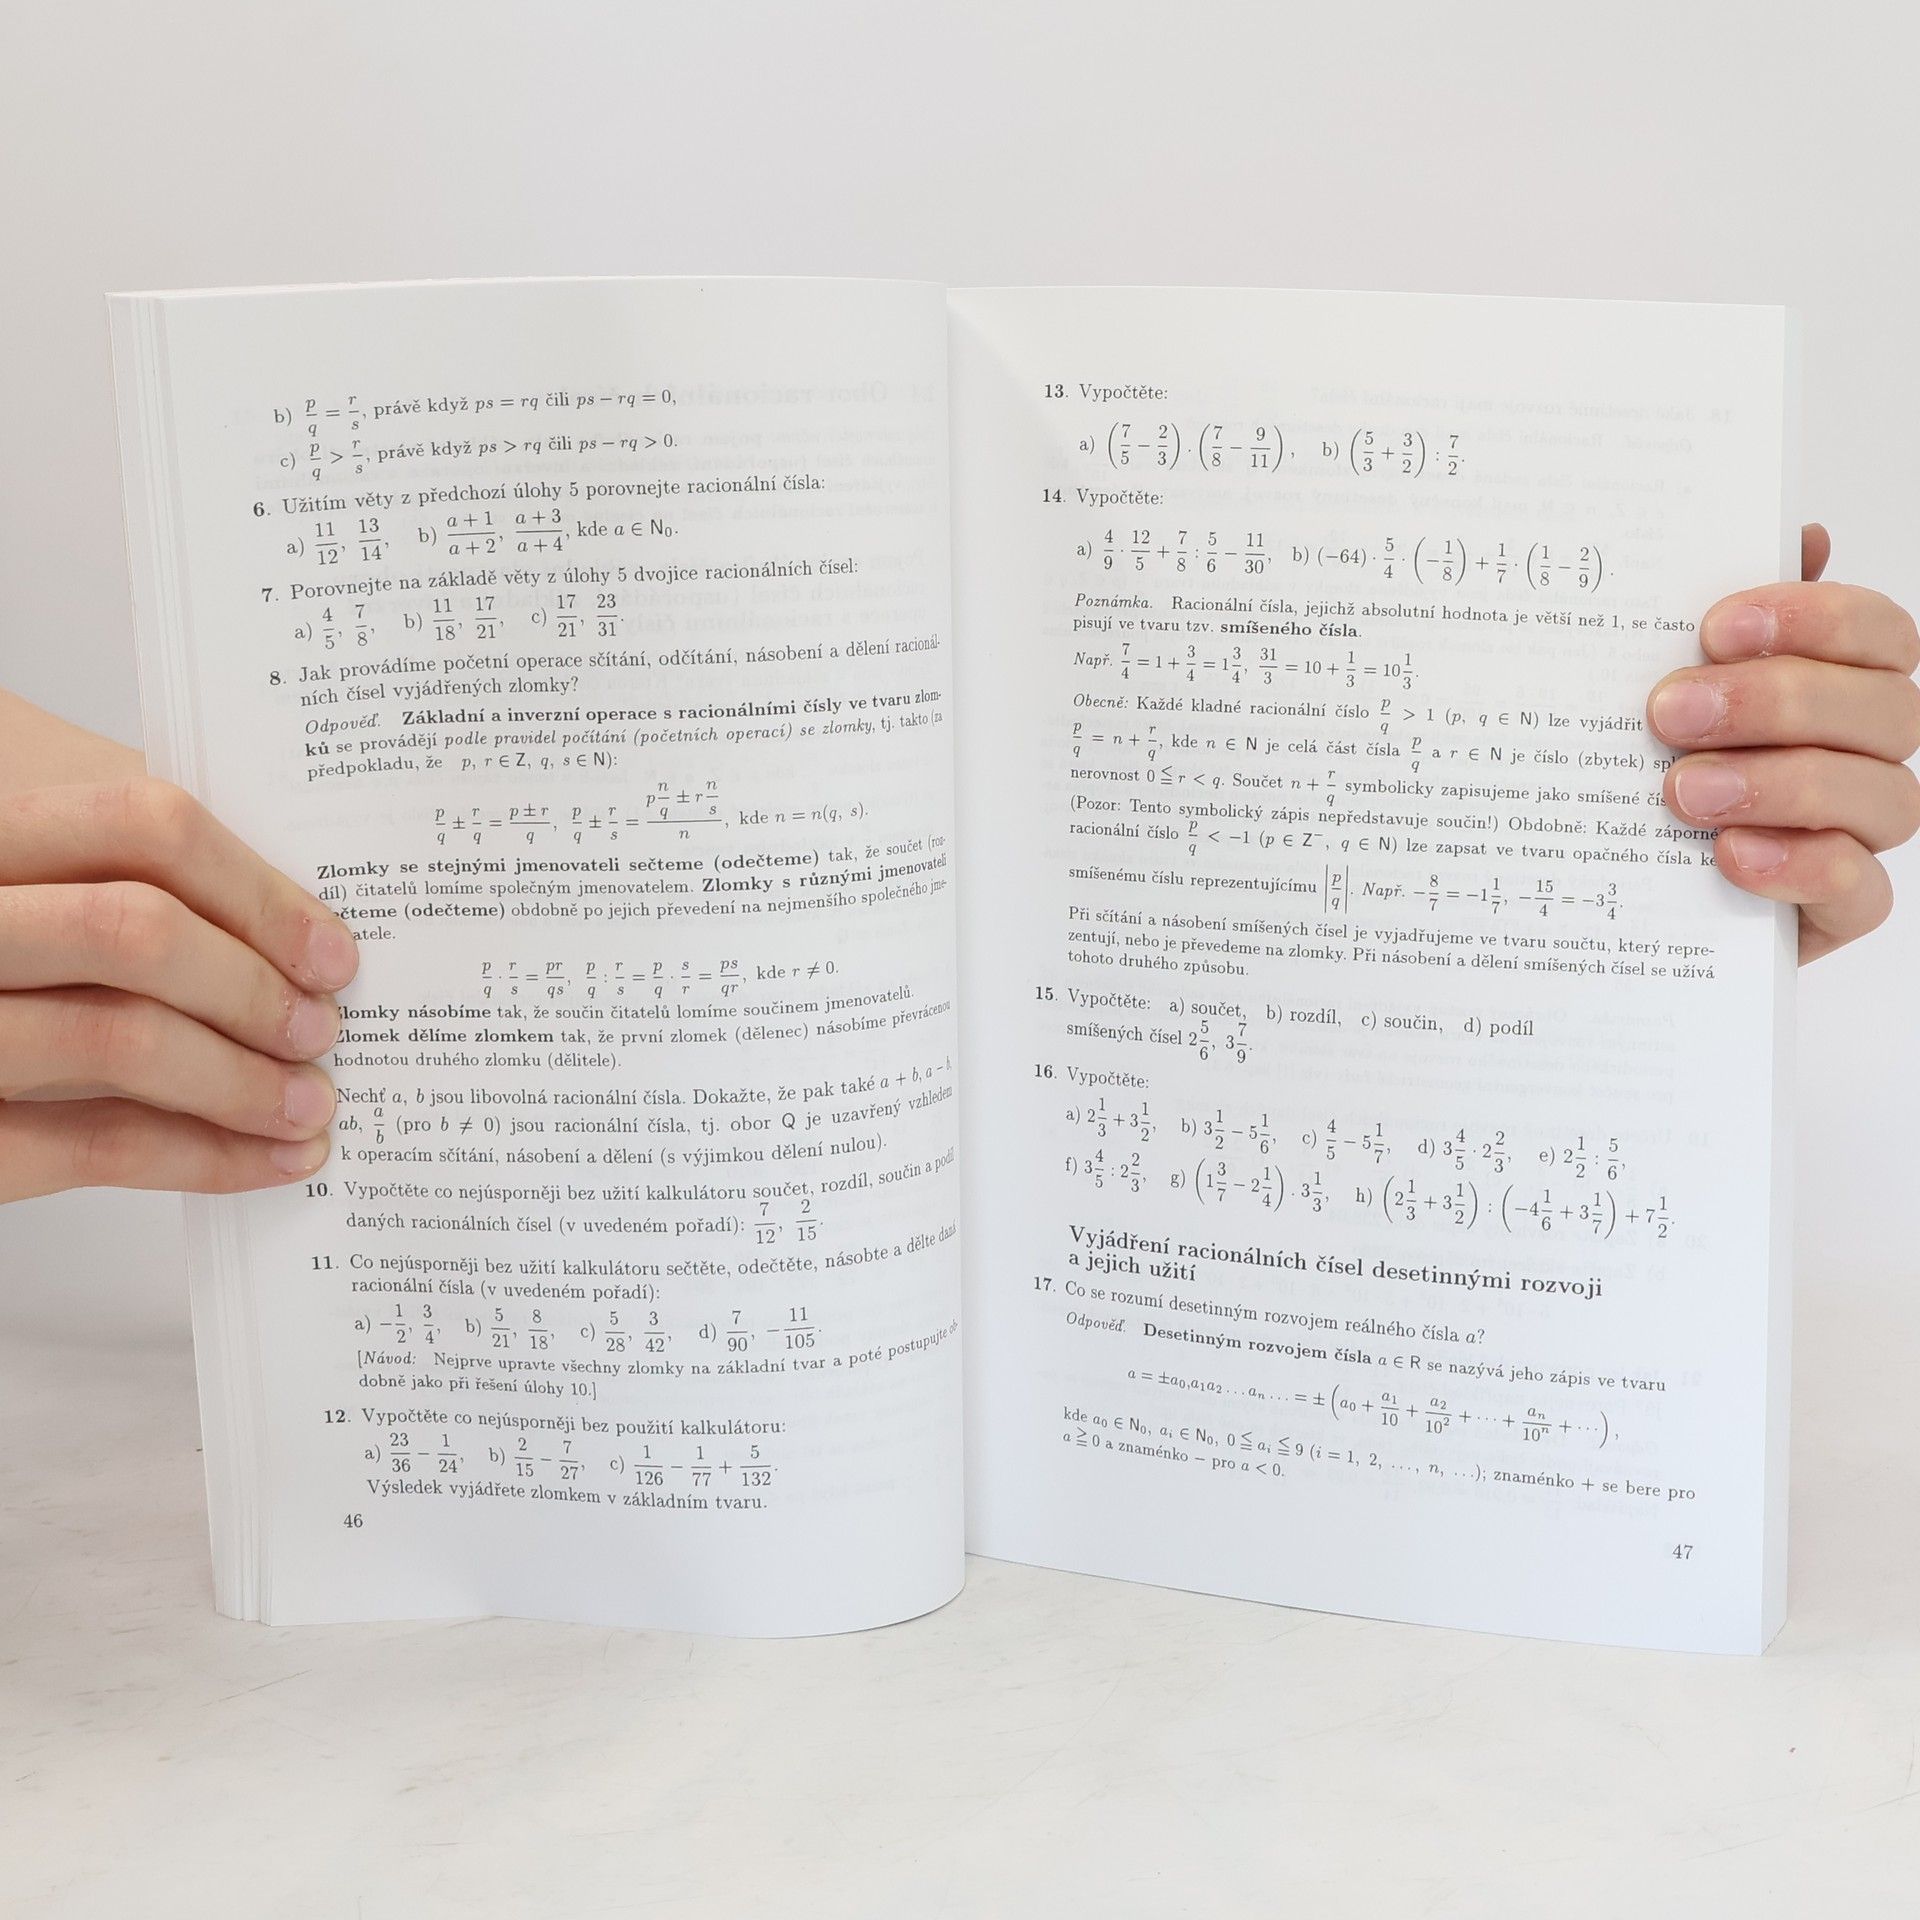 b) p/q = r/s, právě když ps = rq čili ps − rq = 0,
c) p/q > r/s, právě když ps > rq čili ps − rq > 0.
6. Užitím věty z předchozí úlohy 5 porovnejte racionální čísla:
a) 11/12, 13/14, b) (a + 1)/(a + 2), (a + 3)/(a + 4), kde a ∈ N₀.
7. Porovnejte na základě věty z úlohy 5 dvojice racionálních čísel:
a) 4/5, 7/8, b) 11/18, 17/21, c) 17/21, 23/31.
8. Jak provádíme početní operace sčítání, odčítání, násobení a dělení racionál-
ních čísel vyjádřených zlomky?
Odpověď. Základní a inverzní operace s racionálními čísly ve tvaru zlom-
ků se provádějí podle pravidel počítání (početních operací) se zlomky, tj. takto (za
předpokladu, že p, r ∈ Z, q, s ∈ N):
p/q ± r/q = (p ± r)/q, p/q ± r/s = (p n/q ± r n/s)/n, kde n = n(q, s).
Zlomky se stejnými jmenovateli sečteme (odečteme) tak, že součet (roz-
díl) čitatelů lomíme společným jmenovatelem. Zlomky s různými jmenovateli
čteme (odečteme) obdobně po jejich převedení na nejmenšího společného jme-
atele.
p/q · r/s = pr/qs, p/q : r/s = p/q · s/r = ps/qr, kde r ≠ 0.
Zlomky násobíme tak, že součin čitatelů lomíme součinem jmenovatelů.
Zlomek dělíme zlomkem tak, že první zlomek (dělenec) násobíme převrácenou
hodnotou druhého zlomku (dělitele).
Nechť a, b jsou libovolná racionální čísla. Dokažte, že pak také a + b, a − b,
ab, a/b (pro b ≠ 0) jsou racionální čísla, tj. obor Q je uzavřený vzhledem
k operacím sčítání, násobení a dělení (s výjimkou dělení nulou).
10. Vypočtěte co nejúsporněji bez užití kalkulátoru součet, rozdíl, součin a podíl
daných racionálních čísel (v uvedeném pořadí): 7/12, 2/15.
11. Co nejúsporněji bez užití kalkulátoru sečtěte, odečtěte, násobte a dělte daná
racionální čísla (v uvedeném pořadí):
a) −1/2, 3/4, b) 5/21, 8/18, c) 5/28, 3/42, d) 7/90, −11/105.
[Návod: Nejprve upravte všechny zlomky na základní tvar a poté postupujte ob-
dobně jako při řešení úlohy 10.]
12. Vypočtěte co nejúsporněji bez použití kalkulátoru:
a) 23/36 − 1/24, b) 2/15 − 7/27, c) 1/126 − 1/77 + 5/132.
Výsledek vyjádřete zlomkem v základním tvaru.
46
13. Vypočtěte:
a) (7/5 − 2/3) · (7/8 − 9/11), b) (5/3 + 3/2) : 7/2.
14. Vypočtěte:
a) 4/9 · 12/5 + 7/8 : 5/6 − 11/30, b) (−64) · 5/4 · (−1/8) + 1/7 · (1/8 − 2/9).
Poznámka. Racionální čísla, jejichž absolutní hodnota je větší než 1, se často
pisují ve tvaru tzv. smíšeného čísla.
Např. 7/4 = 1 + 3/4 = 1 3/4, 31/3 = 10 + 1/3 = 10 1/3.
Obecně: Každé kladné racionální číslo p/q > 1 (p, q ∈ N) lze vyjádřit
p/q = n + r/q, kde n ∈ N je celá část čísla p/q a r ∈ N je číslo (zbytek) spl
nerovnost 0 ≦ r < q. Součet n + r/q symbolicky zapisujeme jako smíšené čís
(Pozor: Tento symbolický zápis nepředstavuje součin!) Obdobně: Každé záporné
racionální číslo p/q < −1 (p ∈ Z⁻, q ∈ N) lze zapsat ve tvaru opačného čísla ke
smíšenému číslu reprezentujícímu |p/q|. Např. −8/7 = −1 1/7, −15/4 = −3 3/4.
Při sčítání a násobení smíšených čísel je vyjadřujeme ve tvaru součtu, který repre-
zentují, nebo je převedeme na zlomky. Při násobení a dělení smíšených čísel se užívá
tohoto druhého způsobu.
15. Vypočtěte: a) součet, b) rozdíl, c) součin, d) podíl
smíšených čísel 2 5/6, 3 7/9.
16. Vypočtěte:
a) 2 1/3 + 3 1/2, b) 3 1/2 − 5 1/6, c) 4/5 − 5 1/7, d) 3 4/5 · 2 2/3, e) 2 1/2 : 5/6,
f) 3 4/5 : 2 2/3, g) (1 3/7 − 2 1/4) · 3 1/3, h) (2 1/3 + 3 1/2) : (−4 1/6 + 3 1/7) + 7 1/2.
Vyjádření racionálních čísel desetinnými rozvoji
a jejich užití
17. Co se rozumí desetinným rozvojem reálného čísla a?
Odpověď. Desetinným rozvojem čísla a ∈ R se nazývá jeho zápis ve tvaru
a = ±a₀,a₁a₂ … aₙ … = ± (a₀ + a₁/10 + a₂/10² + ⋯ + aₙ/10ⁿ + ⋯),
kde a₀ ∈ N₀, aᵢ ∈ N₀, 0 ≦ aᵢ ≦ 9 (i = 1, 2, …, n, …); znaménko + se bere pro
a ≧ 0 a znaménko − pro a < 0.
47